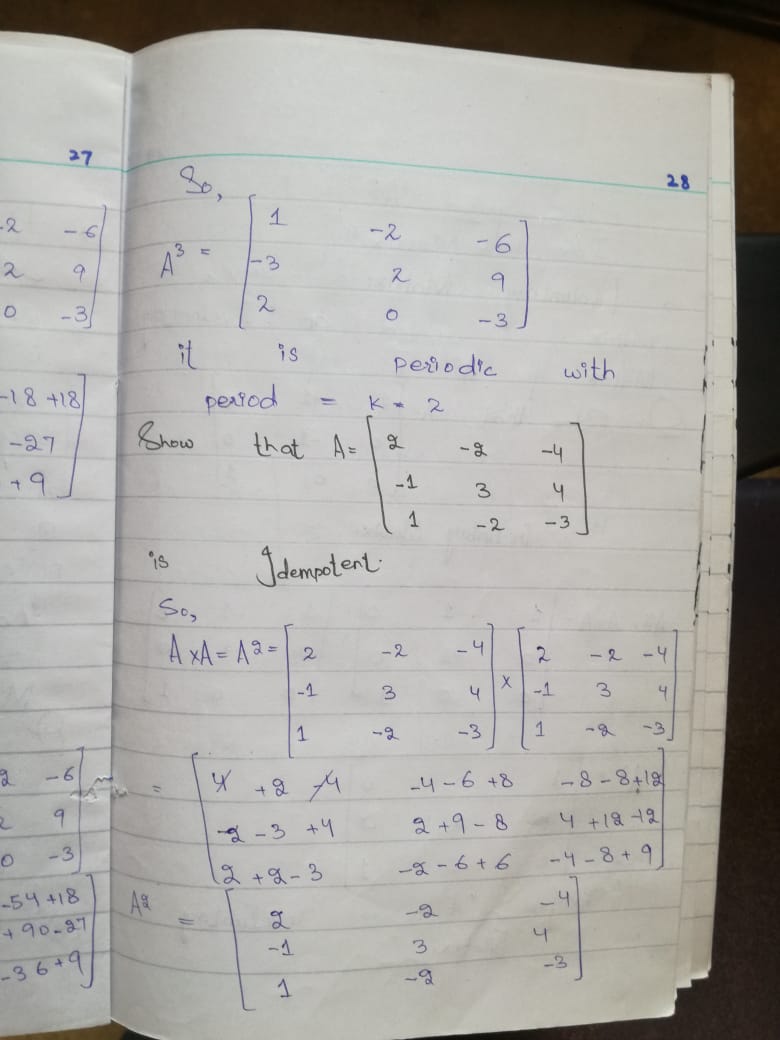 27
-2 -6
2 9
0 -3
-18 +18
-27
+9
2 -6
2 9
0 -3
-54 +18
+90-27
-36+9
28
So,
1 -2 -6
A³ = -3 2 9
2 0 -3
it is periodic with
period = K = 2
Show that A = 2 -2 -4
-1 3 4
1 -2 -3
is Idempotent.
So,
A x A = A² = 2 -2 -4 x 2 -2 -4
-1 3 4 -1 3 4
1 -2 -3 1 -2 -3
= 4 +2 -4 -4-6+8 -8-8+12
-2-3+4 2+9-8 4+12-12
2+2-3 -2-6+6 -4-8+9
A² = 2 -2 -4
-1 3 4
1 -2 -3